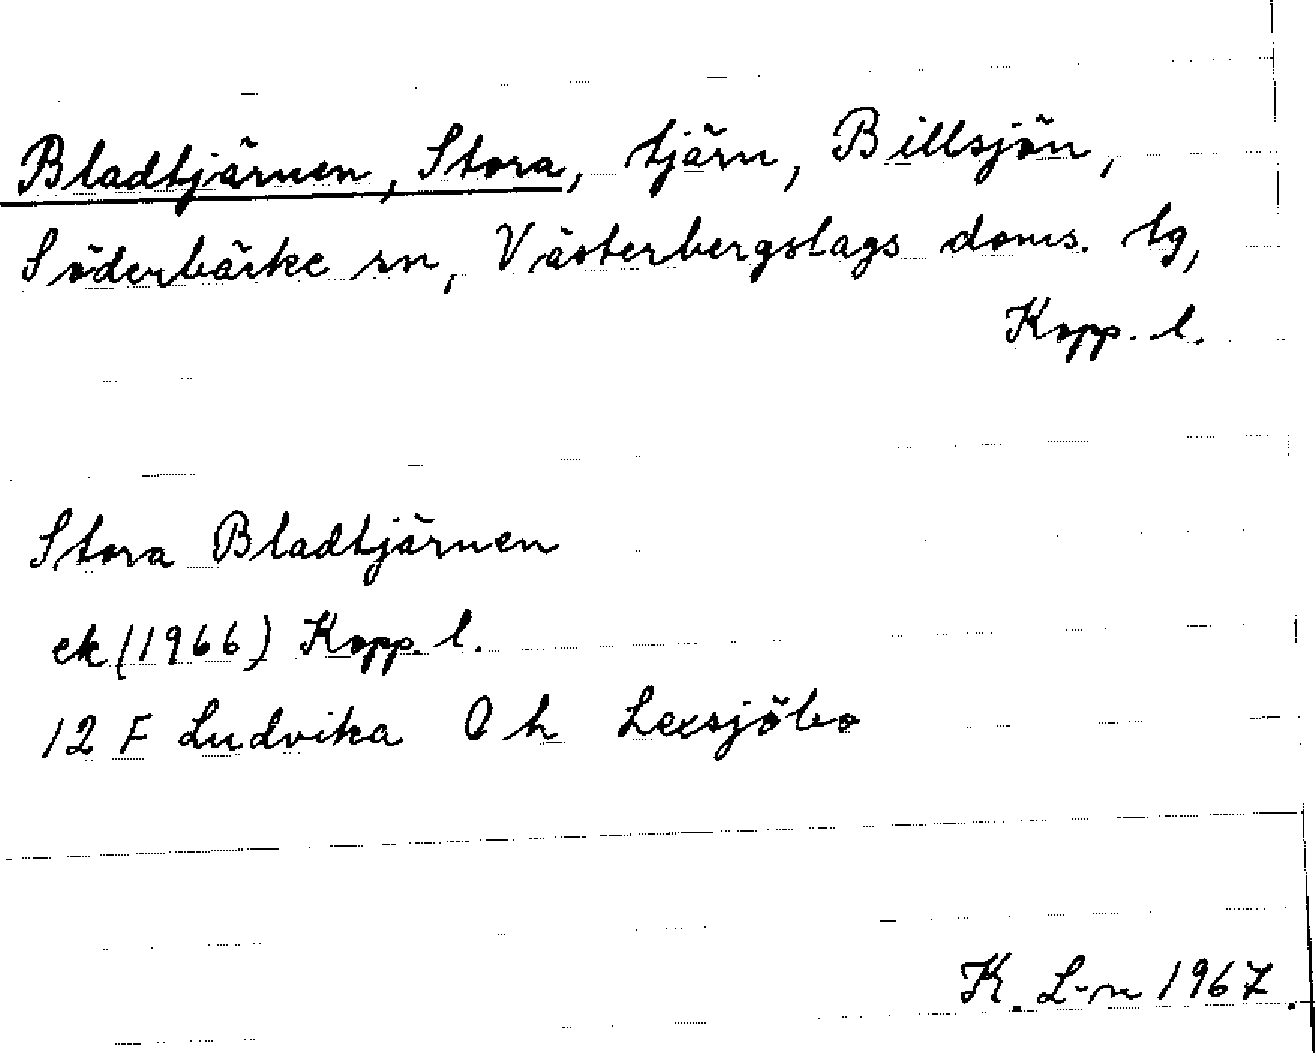 Bladtjärnen, Stora, tjärn, Billsjön,
Söderbärke sn, Västerbergslags doms. tg,
Kopp. l.
Stora Bladtjärnen
ek (1966) Kopp. l.
12 F Ludvika 0 h Lexsjöbo
K. L-n 1967.